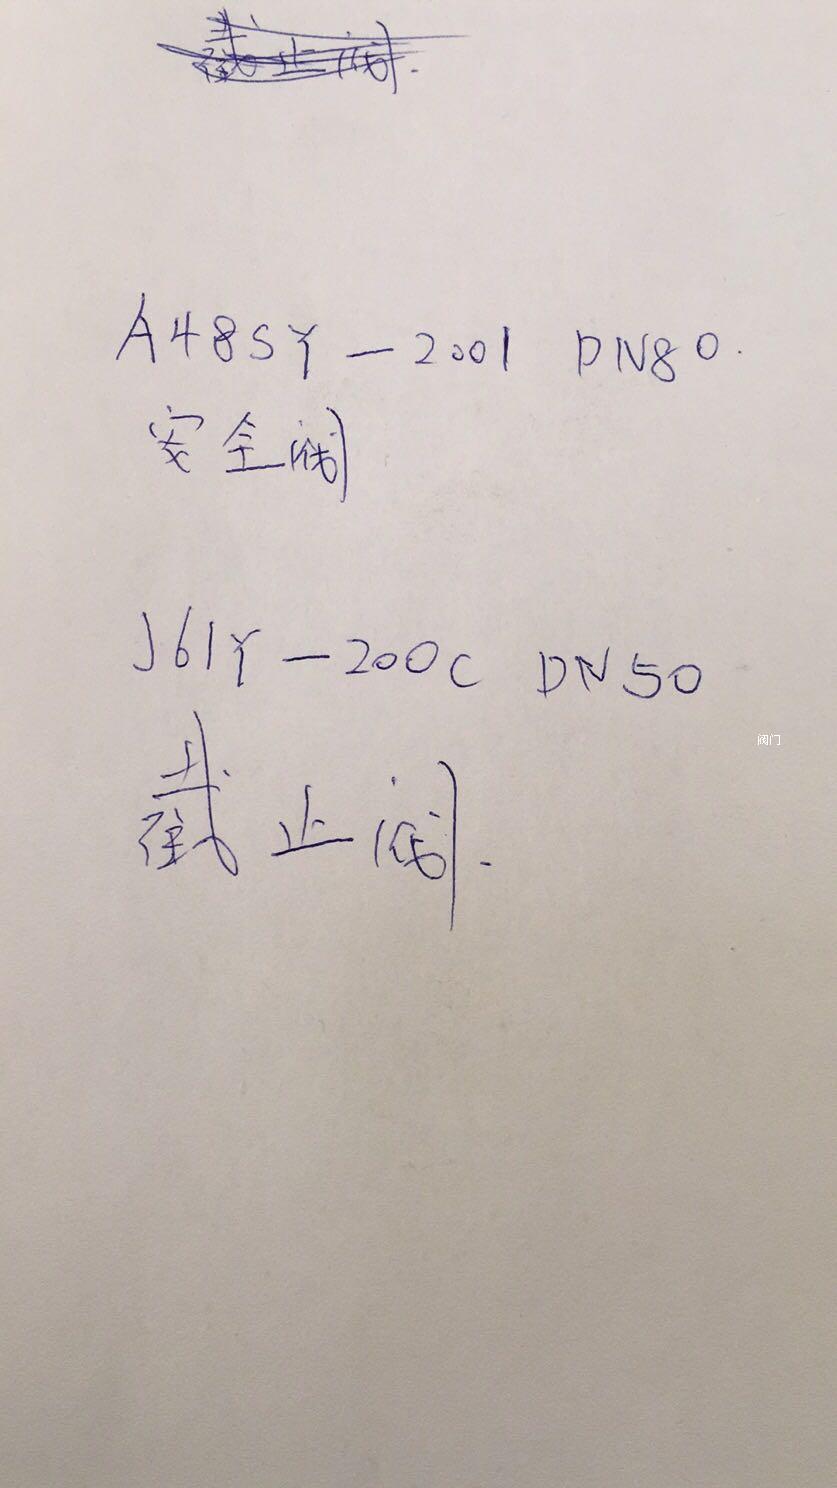 截止阀.
A48SY-200I DN80.
安全阀
J61Y-200C DN50
阀门
截止阀.